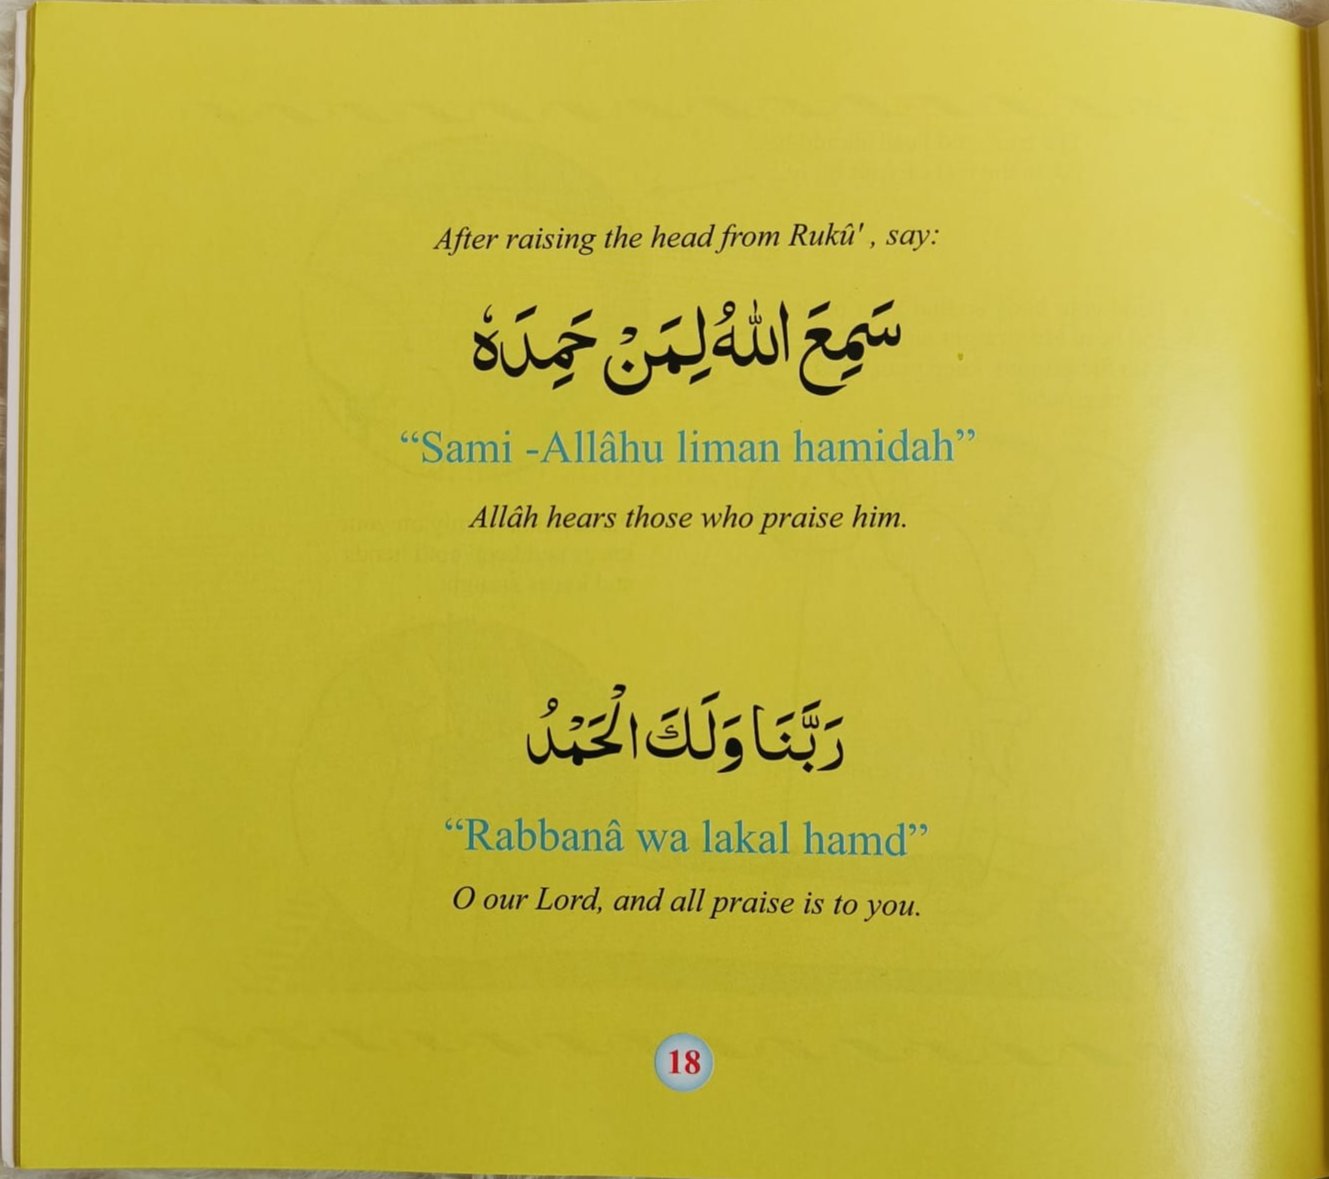 After raising the head from Rukû' , say:
سَمِعَ اللهُ لِمَنْ حَمِدَهٗ
“Sami -Allâhu liman hamidah”
Allâh hears those who praise him.
رَبَّنَا وَلَكَ الْحَمْدُ
“Rabbanâ wa lakal hamd”
O our Lord, and all praise is to you.
18